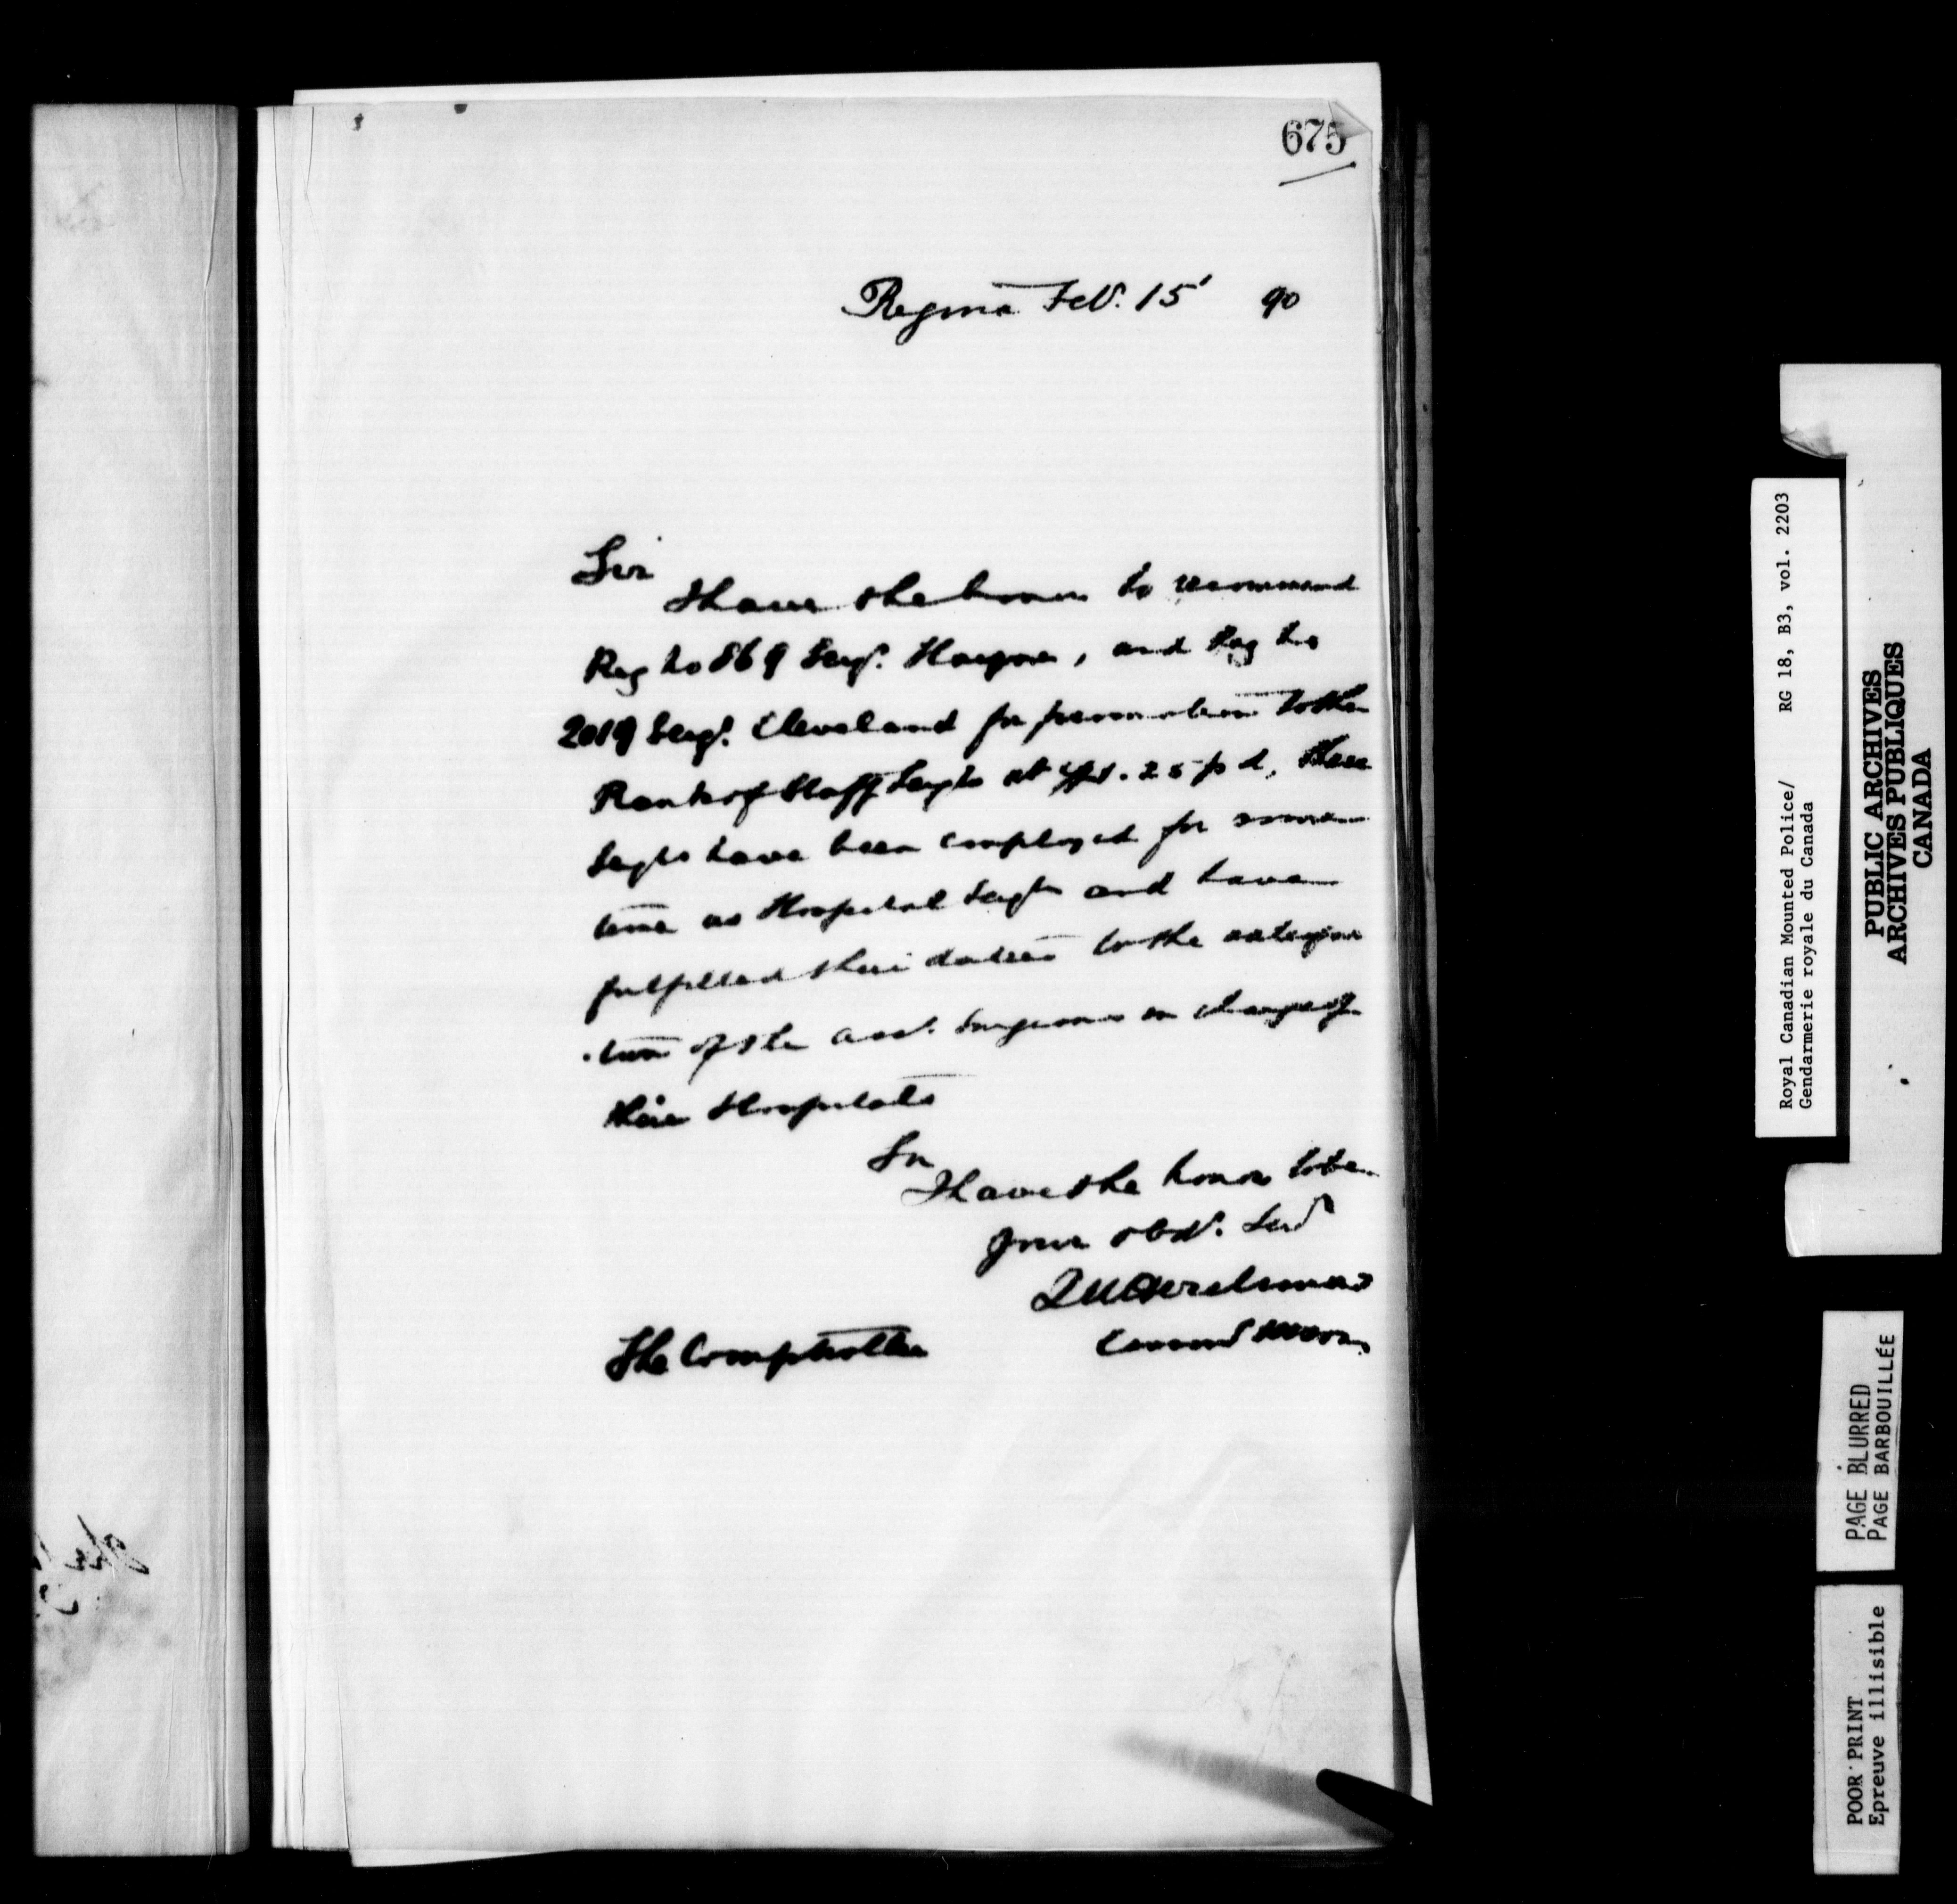 675
Regina Feb. 15' 90
Sir
I have the honor to recommend
Reg No 869 Sergt. Haynes, and Reg No
2019 Sergt. Cleveland for promotion to the
Rank of Staff Sergts at $1.25 p d, these
Sergts have been employed for some
time as Hospital Sergts and have
fulfilled their duties to the satisfac
-tion of the asst. Surgeons in charge of
their Hospitals
Sir
I have the honor to be
your obdt. Servt
Herchmer
The Comptroller
Royal Canadian Mounted Police/ RG 18, B3, vol. 2203
Gendarmerie royale du Canada
PUBLIC ARCHIVES
ARCHIVES PUBLIQUES
CANADA
PAGE BLURRED
PAGE BARBOUILLÉE
POOR PRINT
Epreuve illisible